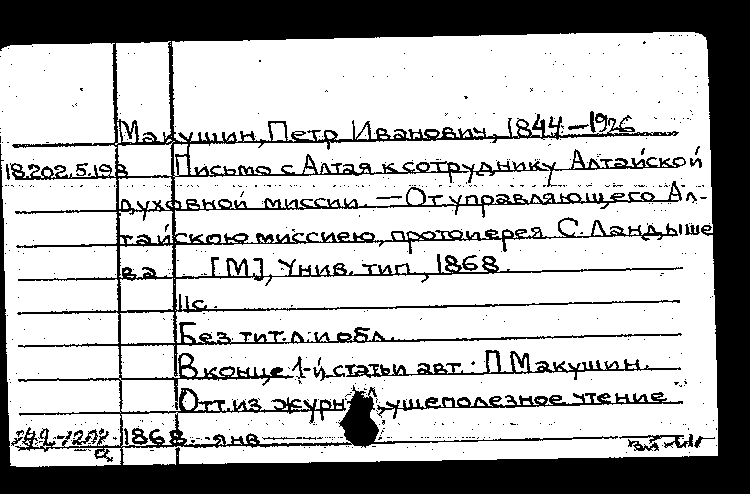 Макушин, Петр Иванович, 1844–1926
18.202.5.198 Письмо с Алтая к сотруднику Алтайской
духовной миссии. — От управляющего Ал-
тайскою миссиею, протоиерея С. Ландыше
ва [М], Унив. тип., 1868.
11с.
Без тит. л. и обл.
В конце 1-й статьи авт.: П Макушин.
Отт. из журн ,ушеполезное чтение
1868 янв